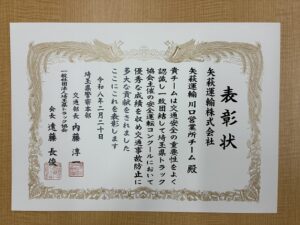 表彰状
矢萩運輸株式会社
矢萩運輸 川口営業所チーム 殿
貴チームは交通安全の重要性をよく
認識し一致団結して埼玉県トラック
協会主催の安全運転コンクールにおいて
優秀な成績を収め交通事故防止に
多大な貢献をされました
ここにこれを表彰します
令和八年二月二十日
埼玉県警察本部
交通部長 内藤淳一
一般社団法人埼玉県トラック協会
会長 遠藤長俊